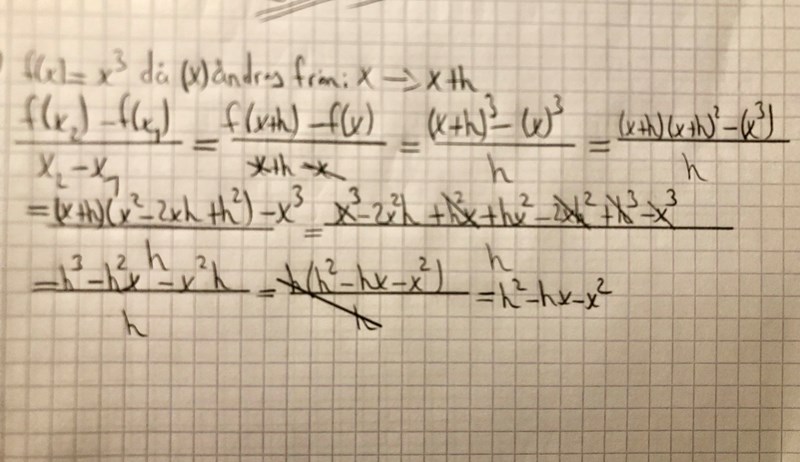 f(x) = x³ då (x) ändras från: x → x+h
(f(x₂) - f(x₁))/(x₂ - x₁) = (f(x+h) - f(x))/(x+h - x) = ((x+h)³ - (x)³)/h = ((x+h)(x+h)² - (x³))/h
= ((x+h)(x² - 2xh + h²) - x³)/h = (x³ - 2x²h + h²x + hx² - 2xh² + h³ - x³)/h
= (h³ - h²x - x²h)/h = h(h² - hx - x²)/h = h² - hx - x²